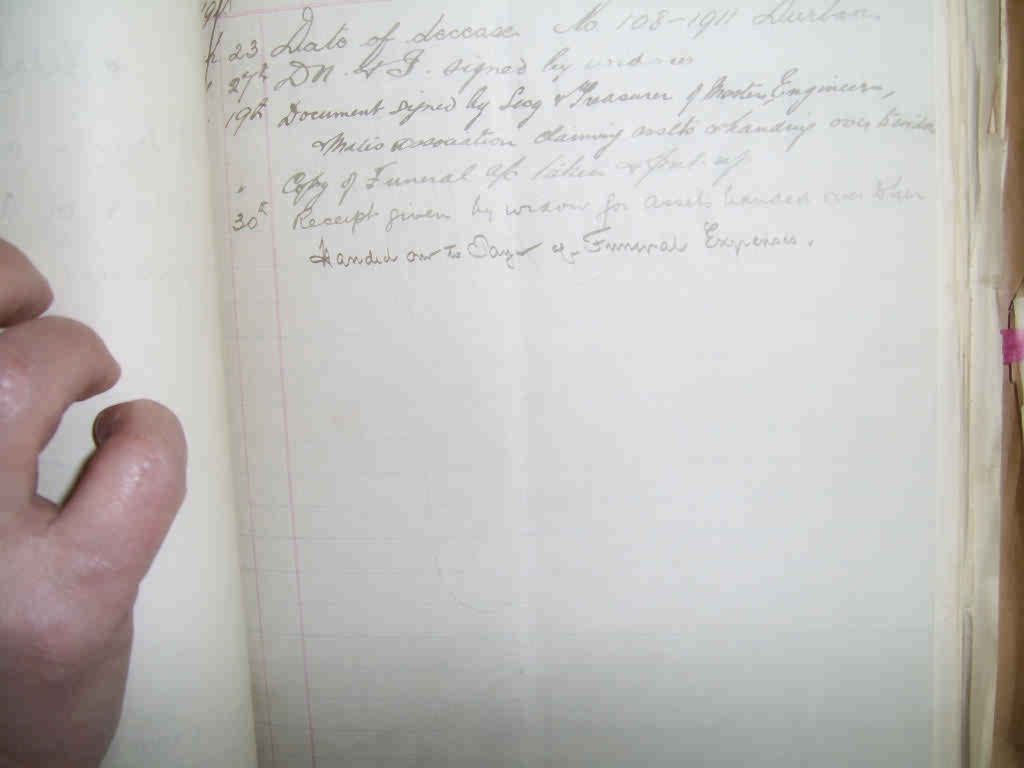 1911
23 Date of decease No 108-1911 Durban
27th DN & I. signed by widow
19th Document signed by Secy & Treasurer of Masters, Engineers,
& Mates association claiming assets & handing over to widow
" Copy of Funeral a/c taken & put up
30th Receipt given by widow for assets handed over to her
Handed over to Pay of Funeral Expenses.